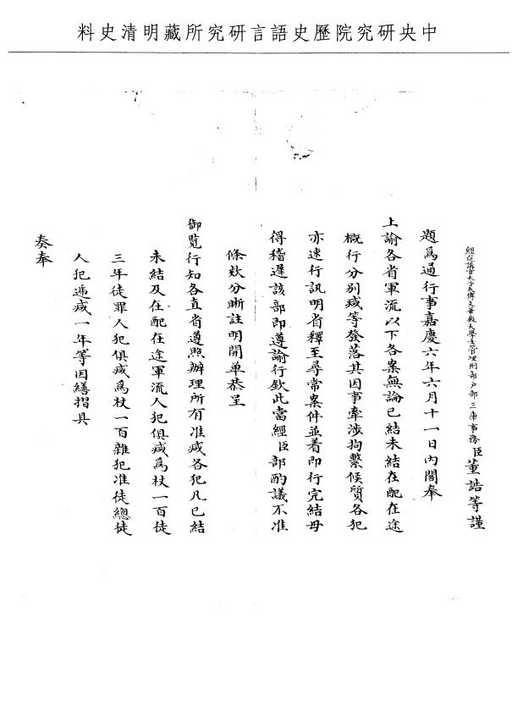 中央研究院歷史語言研究所藏明清史料
經筵講官太子太傅文華殿大學士管理刑部戶部三庫事務臣董誥等謹
題為通行事嘉慶六年六月十一日內閣奉
上諭各省軍流以下各案無論已結未結在配在途
概行分別減等發落其因事牽涉拘繫候質各犯
亦速行訊明省釋至尋常案件並着即行完結毋
得稽遲該部即遵諭行欽此當經臣部酌議不准
條款分晰註明開單恭呈
御覽行知各直省遵照辦理所有准減各犯凡已結
未結及在配在途軍流人犯俱減為杖一百徒
三年徒罪人犯俱減為杖一百雜犯准徒總徒
人犯遞減一年等因繕摺具
奏奉